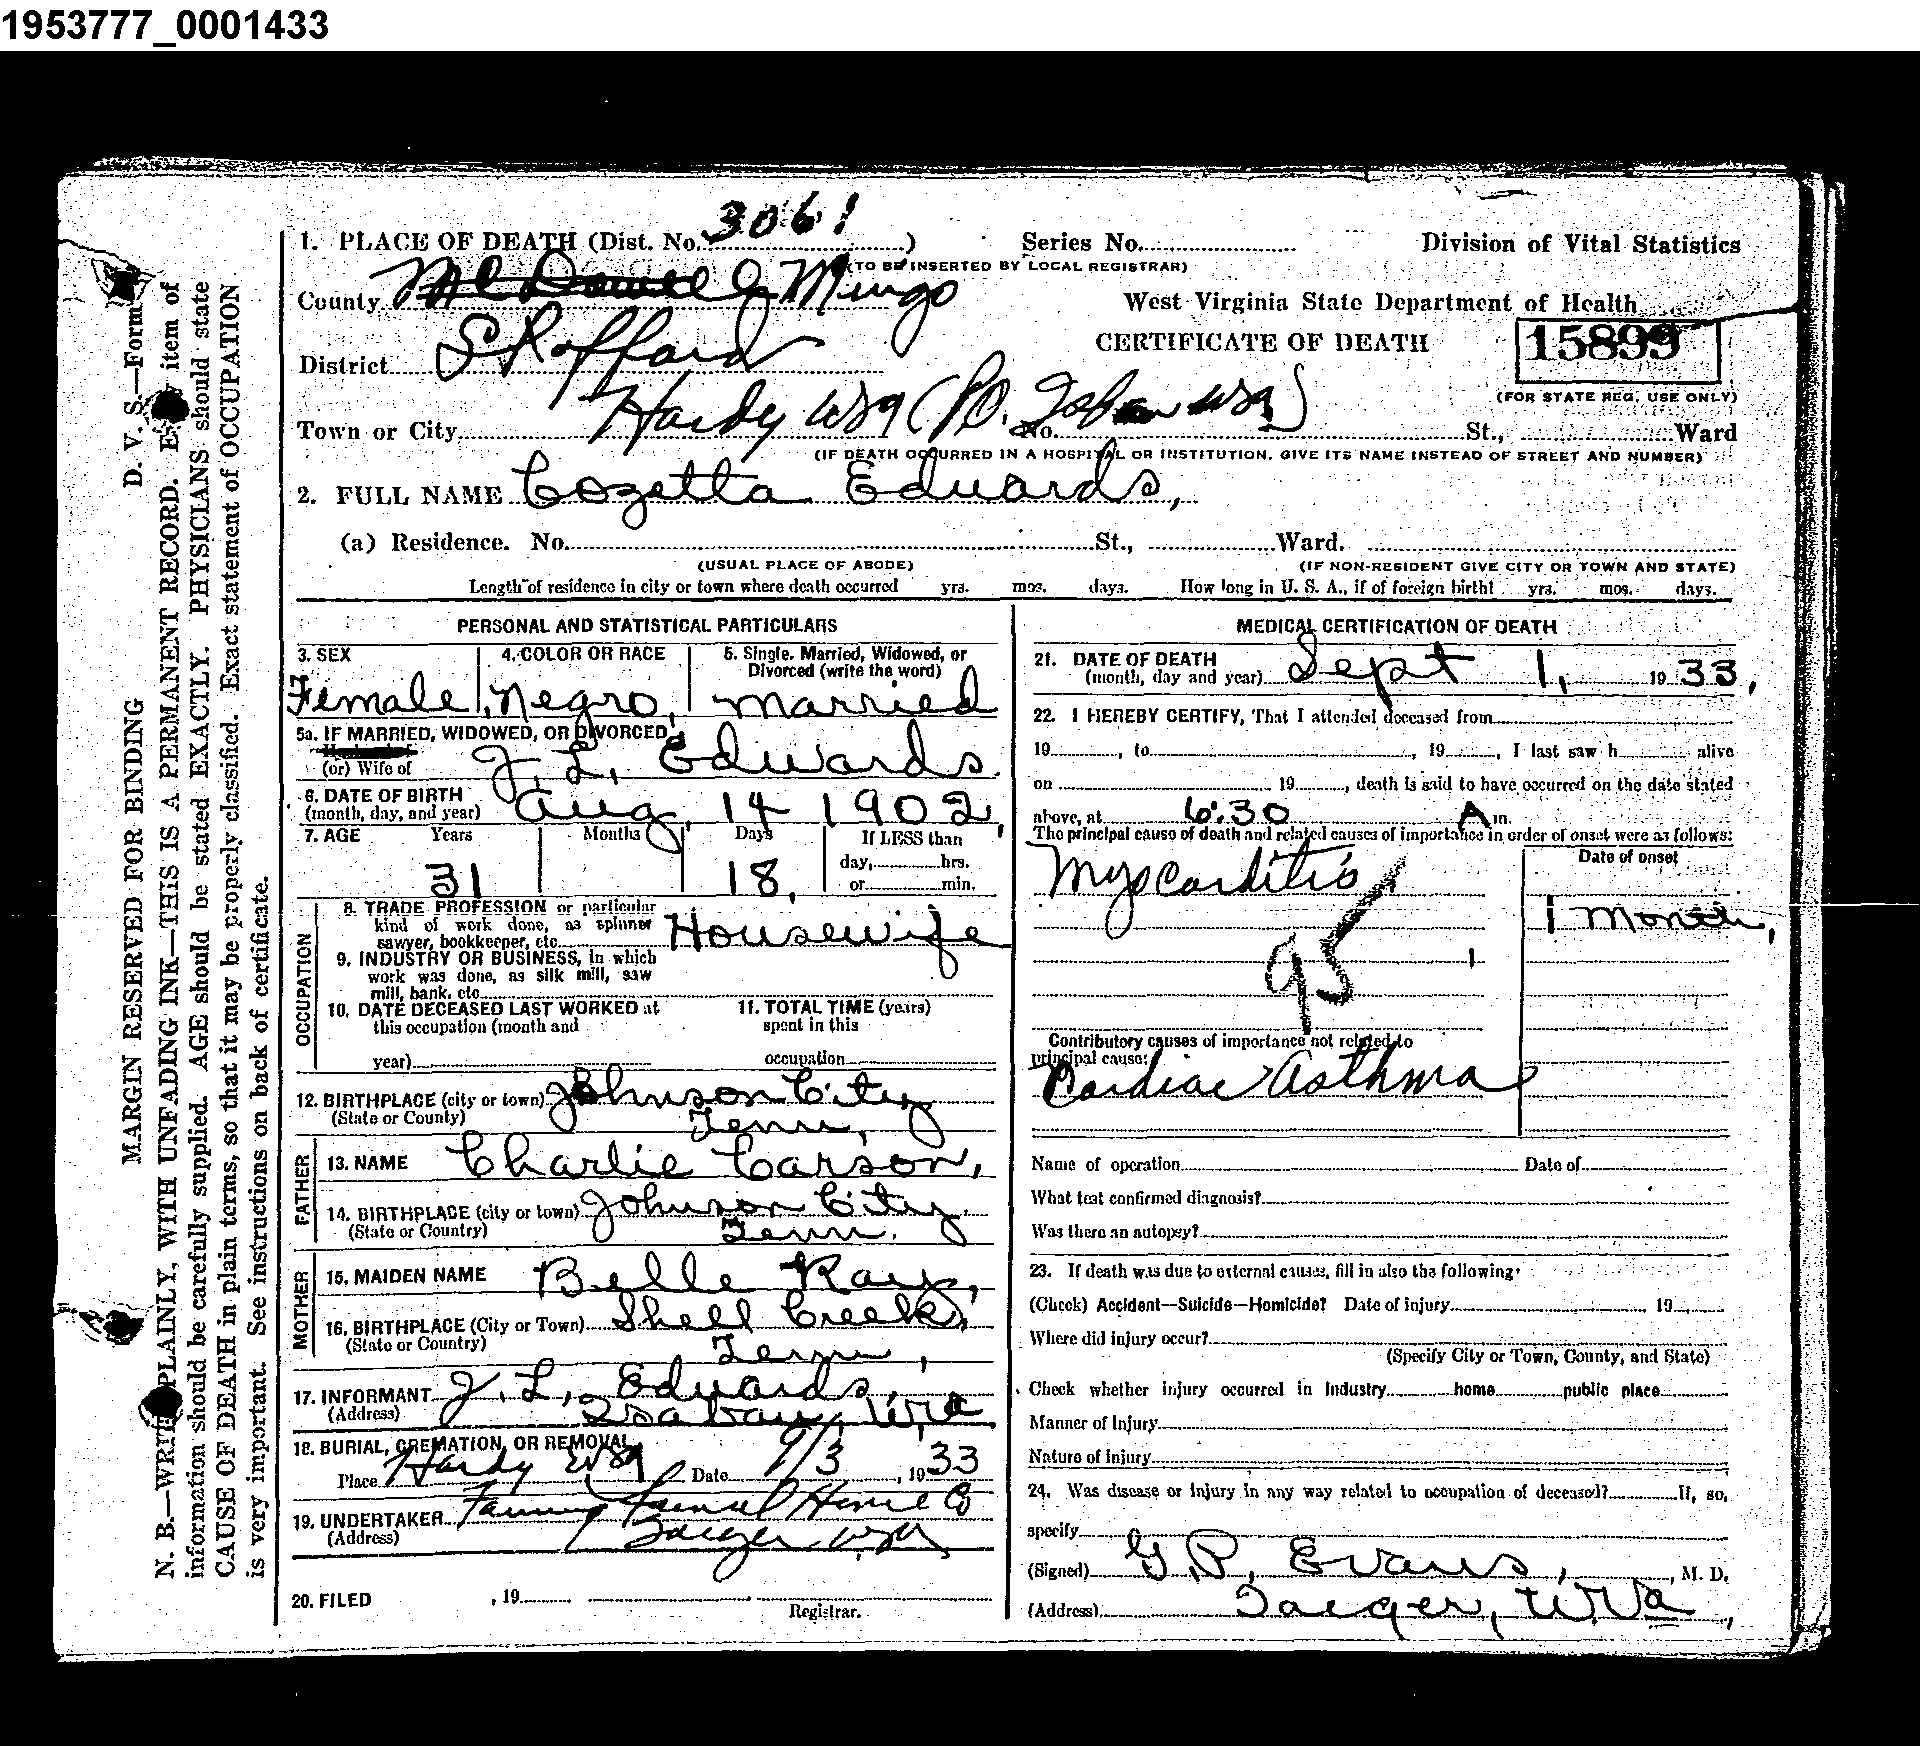 1953777_0001433
1. PLACE OF DEATH (Dist. No. 3061) Series No. Division of Vital Statistics
(TO BE INSERTED BY LOCAL REGISTRAR)
County McDowell Mingo West Virginia State Department of Health
CERTIFICATE OF DEATH 15899
District Stafford
(FOR STATE REG. USE ONLY)
Town or City Hardy W Va (P.O. W Va) No. St., Ward
(IF DEATH OCCURRED IN A HOSPITAL OR INSTITUTION, GIVE ITS NAME INSTEAD OF STREET AND NUMBER)
2. FULL NAME Cozetta Edwards,
(a) Residence. No. St., Ward.
(USUAL PLACE OF ABODE) (IF NON-RESIDENT GIVE CITY OR TOWN AND STATE)
Length of residence in city or town where death occurred yrs. mos. days. How long in U. S. A., if of foreign birth? yrs. mos. days.
PERSONAL AND STATISTICAL PARTICULARS
3. SEX 4. COLOR OR RACE 5. Single, Married, Widowed, or
Divorced (write the word)
Female, Negro, Married
5a. IF MARRIED, WIDOWED, OR DIVORCED
(or) Wife of J. L. Edwards.
6. DATE OF BIRTH
(month, day, and year) Aug. 14 1902,
7. AGE Years Months Days If LESS than
day, hrs.
31 18, or min.
OCCUPATION
8. TRADE PROFESSION or particular
kind of work done, as spinner
sawyer, bookkeeper, etc. Housewife
9. INDUSTRY OR BUSINESS, in which
work was done, as silk mill, saw
mill, bank, etc.
10. DATE DECEASED LAST WORKED at 11. TOTAL TIME (years)
this occupation (month and spent in this
year) occupation
12. BIRTHPLACE (city or town) Johnson City
(State or County) Tenn,
FATHER
13. NAME Charlie Carson,
14. BIRTHPLACE (city or town) Johnson City,
(State or Country) Tenn.
MOTHER
15. MAIDEN NAME Belle Ray,
16. BIRTHPLACE (City or Town) Shell Creek,
(State or Country) Tenn,
17. INFORMANT J. L. Edwards,
(Address) Isaban, W Va
18. BURIAL, CREMATION, OR REMOVAL
Place Hardy W Va Date 9/3, 1933
19. UNDERTAKER Funeral Home Co
(Address) Iaeger W Va
20. FILED , 19
Registrar.
MEDICAL CERTIFICATION OF DEATH
21. DATE OF DEATH
(month, day and year) Sept 1, 1933,
22. I HEREBY CERTIFY, That I attended deceased from
19 , to , 19 , I last saw h alive
on 19 , death is said to have occurred on the date stated
above, at 6:30 A m.
The principal cause of death and related causes of importance in order of onset were as follows:
Date of onset
Myocarditis
1 month,
95
Contributory causes of importance not related to
principal cause:
Cardiac Asthma
Name of operation Date of
What test confirmed diagnosis?
Was there an autopsy?
23. If death was due to external causes, fill in also the following:
(Check) Accident—Suicide—Homicide? Date of injury 19
Where did injury occur?
(Specify City or Town, County, and State)
Check whether injury occurred in Industry home public place
Manner of Injury
Nature of injury
24. Was disease or injury in any way related to occupation of deceased? If, so,
specify
(Signed) G. P. Evans, , M. D.
(Address) Iaeger, W Va,
MARGIN RESERVED FOR BINDING D. V. S.—Form
N. B.—WRITE PLAINLY, WITH UNFADING INK—THIS IS A PERMANENT RECORD. Every item of
information should be carefully supplied. AGE should be stated EXACTLY. PHYSICIANS should state
CAUSE OF DEATH in plain terms, so that it may be properly classified. Exact statement of OCCUPATION
is very important. See instructions on back of certificate.